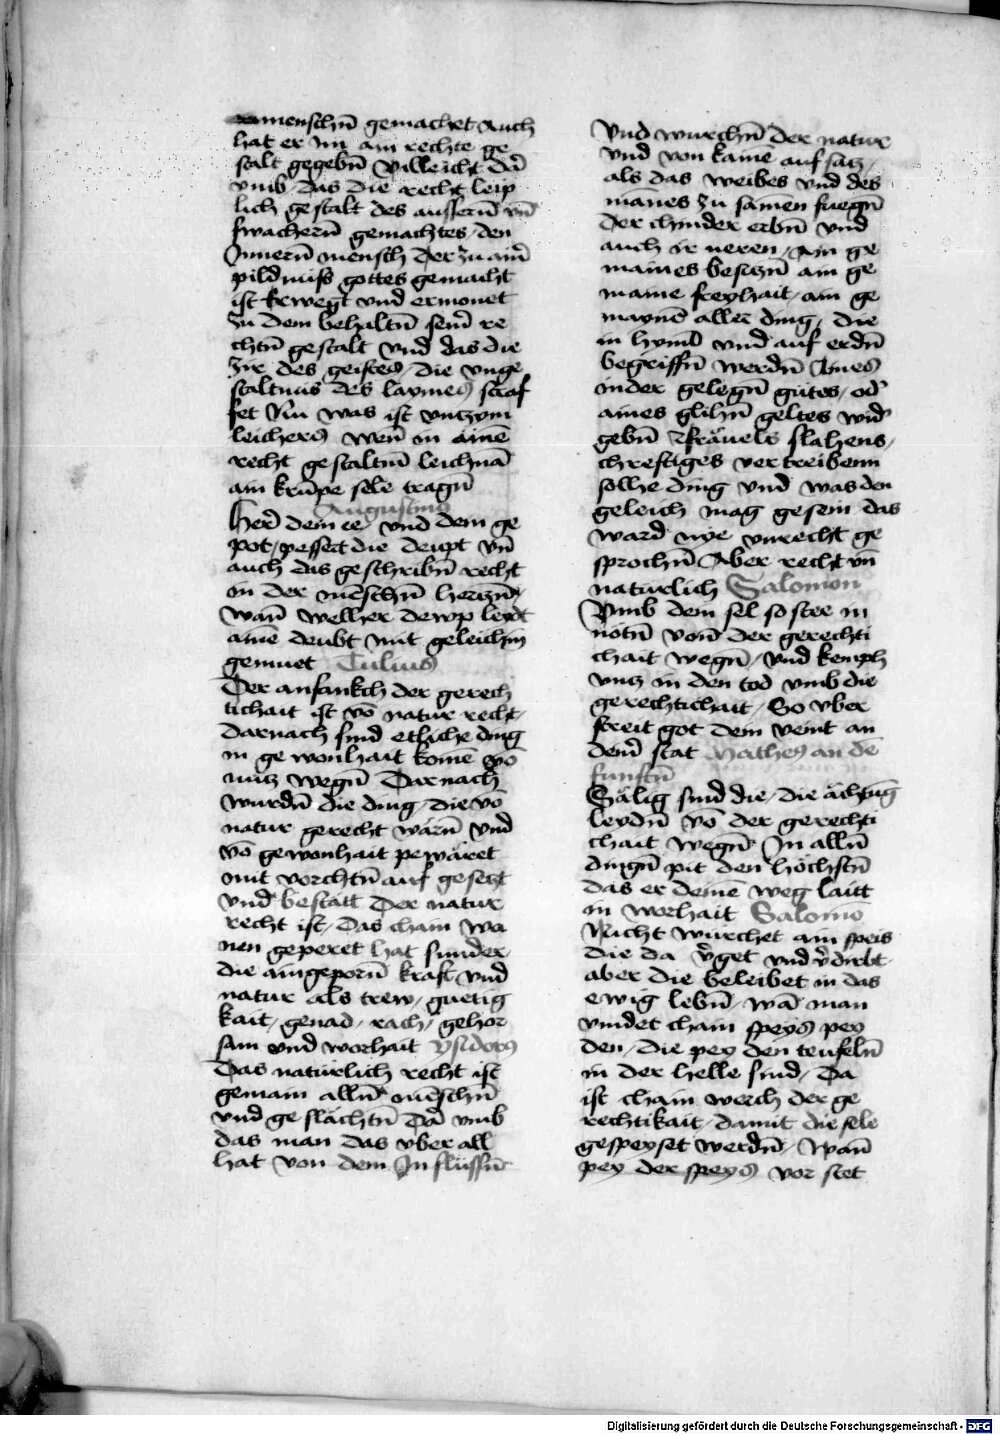 menschn̄ gemachet Auch
hat er im ain rechte ge
stalt gegebn̄ villeicht dar̄
vmb das die recht leip
lich gestalt des aussern̄ vn̄
swachern̄ gemachtes den
Innern̄ mensch der zu ainr̄
pildnuss gottes gemacht
ist bewegt vnd ermonet
zu dem behaltn̄ seinr̄ re
chtn̄ gestalt vnd das die
zir des geistes die vnge
staltnus des laymes straf
fet Nu was ist vnczym
leichers wen̄ in ainē
recht gestaltm̄ leichnā
ain krūpe sele tragn̄
Augustinus
Herr̄ dem ee vnd dem ge
pot pessert die deupt vn̄
auch das geschribn̄ recht
in der mēschn̄ herczn̄
wan̄ welher dewp leydt
ainē deubt mit geleichm
gemuet Tulius
Der anfankch der gerech
tichait ist vō natur recht
darnach sind etliche ding
in gewonhait komē vō
nucz wegn̄ Darnach
wurdn̄ die ding die vō
natur gerecht wärn̄ vnd
vō gewonhait pewäret
mit vorchtn̄ auf geseczt
vnd bestätt Der natur
recht ist das chain wa
nen geperet hat sunder
die aingeporn̄ kraft vnd
natur als trew guetig
kait genad rach gehor
sam vnd worhait ysidorus
Das naturlich recht ist
gemain alln̄ mēschn̄
vnd geslächtn̄ Dar̄ vmb
das man das vber all
hat von dem Influssn̄
vnd wurchn̄ der natur
vnd von kainē aufsacz
als das weibes vnd des
mānes zu samen fuegn̄
der chinder erbn̄ vnd
auch ir neren ain ge
maines besiczn̄ ain ge
maine freyhait ain ge
maynd aller ding die
in hymel vnd auf erdn̄
begriffn̄ werdn̄ Aines
inder gelegn̄ gutes od̄
aines glihn̄ geltes wid̄
gebn̄ frauels slahens
chreftiges vertreibenn
solhe ding vnd was den
geleich mag gesein das
ward nye vnrecht ge
sprochn̄ Aber recht vn̄
naturlich Salomon
Vmb dem sel so ster in
nötn̄ von der gerechti
chait wegn̄ vnd kemph
vncz in den tod vmb die
gerechtichait So vber
streit got dem veint an
deinr̄ stat Matheus an dē
funftn̄
Sälig sind die die ächtūg
leydn̄ vō der gerechti
chait wegn̄ In alln̄
dingn̄ pit den höchstn̄
das er deine weg laitt
in worhait Salomō
Nicht würchet ain speis
die da v̄get vnd v̄dirbt
aber die beleibet in das
ewig lebn̄ wā man
vindet chain speys pey
den die pey den teufeln̄
in der helle sind Da
ist chain werch der ge
rechtikait damit die sele
gespeyset werdn̄ Wan̄
pey der speys vor stet
Digitalisierung gefördert durch die Deutsche Forschungsgemeinschaft - DFG